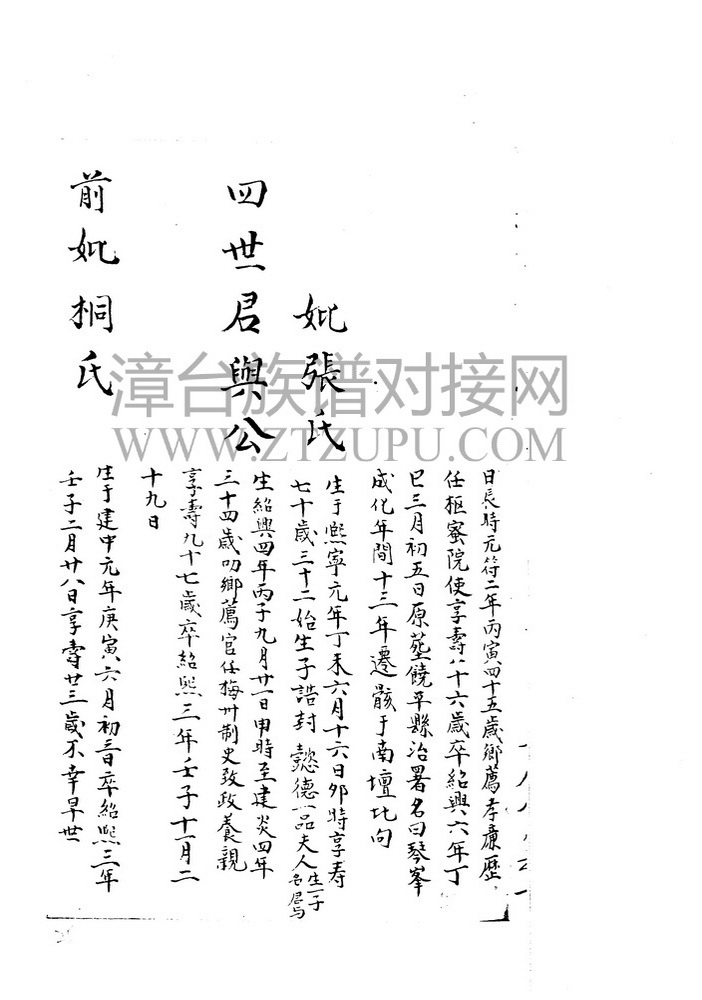 日長時元符二年丙寅四十五歲鄉薦孝廉歷
任枢蜜院使享壽八十六歲卒紹興六年丁
巳三月初五日原塟饒平縣治署名曰琴峯
成化年間十三年遷骸于南壇比向
妣張氏
生于熙寧元年丁未六月十六日卯時享寿
七十歲三十二始生子誥封懿德一品夫人生一子名君与
四世君與公
生紹興四年丙子九月廿一日申時至建炎四年
三十四歲叨鄉薦官任梅州制史致政養親
享壽九十七歲卒紹熙三年壬子十一月二
十九日
前妣桐氏
生于建中元年庚寅六月初三日卒紹熙三年
壬子二月廿八日享壽廿三歲不幸早世
漳台族谱对接网
WWW.ZTZUPU.COM